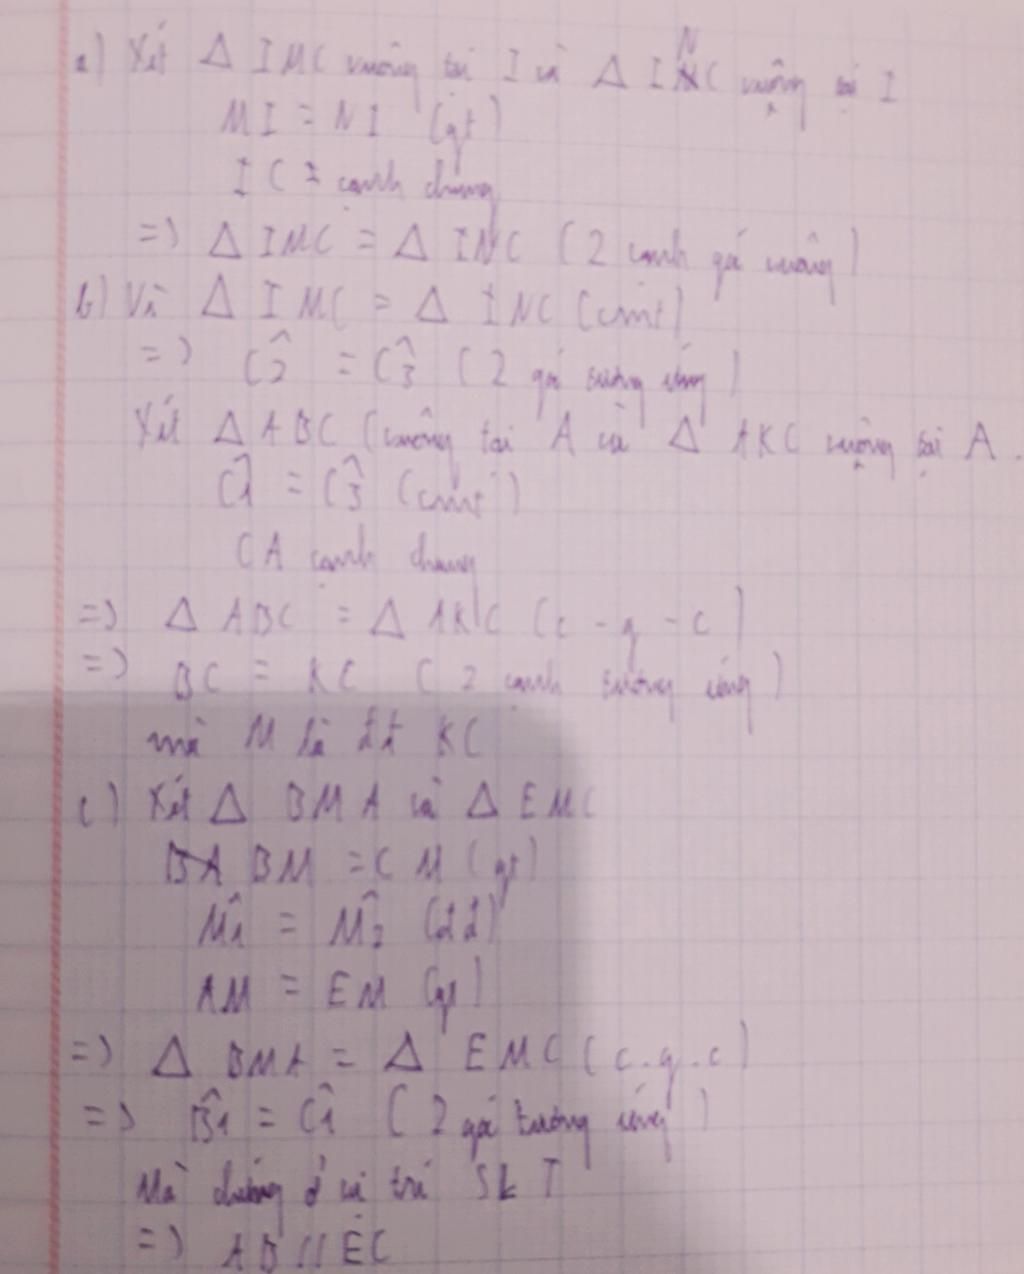 a) Xét Δ IMC vuông tại I và Δ INC vuông tại I
MI = NI (gt)
IC = cạnh chung
=> Δ IMC = Δ INC (2 cạnh gó vuông)
b) Vì Δ IMC = Δ INC (cmt)
=> Ĉ2 = Ĉ3 (2 gó tương ứng)
Xét Δ ABC (vuông tại A và Δ AKC vuông tại A.
Ĉ1 = Ĉ3 (cmt)
CA cạnh chung
=> Δ ABC = Δ AKC (c - g - c)
=> BC = KC (2 cạnh tương ứng)
mà M là đ KC
c) Xét Δ BMA và Δ EMC
BM = CM (gt)
M̂1 = M̂2 (đđ)
AM = EM (gt)
=> Δ BMA = Δ EMC (c.g.c)
=> B̂1 = Ĉ1 (2 gó tương ứng)
Mà chúng ở vị trí SLT
=> AB // EC